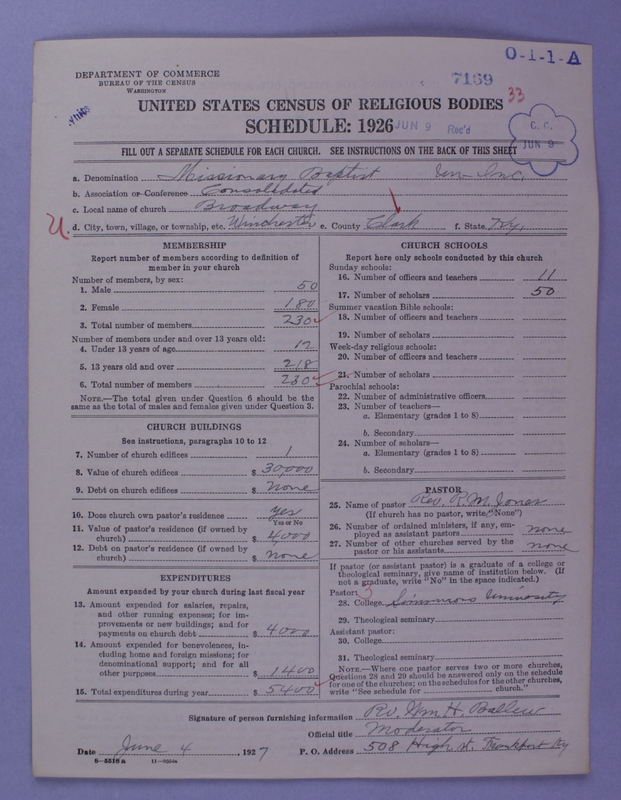 O-1-1-A
DEPARTMENT OF COMMERCE
BUREAU OF THE CENSUS
WASHINGTON
7169
33
UNITED STATES CENSUS OF RELIGIOUS BODIES
SCHEDULE: 1926
JUN 9 Rec'd
C. C.
JUN 9
FILL OUT A SEPARATE SCHEDULE FOR EACH CHURCH. SEE INSTRUCTIONS ON THE BACK OF THIS SHEET
a. Denomination Missionary Baptist
b. Association or Conference Consolidated
c. Local name of church Broadway
U. d. City, town, village, or township, etc. Winchester e. County Clark f. State Ky.
MEMBERSHIP
Report number of members according to definition of
member in your church
Number of members, by sex:
1. Male 50
2. Female 180
3. Total number of members 230
Number of members under and over 13 years old:
4. Under 13 years of age 12
5. 13 years old and over 218
6. Total number of members 230
NOTE.—The total given under Question 6 should be the
same as the total of males and females given under Question 3.
CHURCH BUILDINGS
See instructions, paragraphs 10 to 12
7. Number of church edifices 1
8. Value of church edifices $ 30,000
9. Debt on church edifices $ none
10. Does church own pastor's residence? yes
Yes or No
11. Value of pastor's residence (if owned by
church) $ 4,000
12. Debt on pastor's residence (if owned by
church) $ none
EXPENDITURES
Amount expended by your church during last fiscal year
13. Amount expended for salaries, repairs,
and other running expenses; for im-
provements or new buildings; and for
payments on church debt $ 4000
14. Amount expended for benevolences, in-
cluding home and foreign missions; for
denominational support; and for all
other purposes $ 1400
15. Total expenditures during year $ 5400
CHURCH SCHOOLS
Report here only schools conducted by this church
Sunday schools:
16. Number of officers and teachers 11
17. Number of scholars 50
Summer vacation Bible schools:
18. Number of officers and teachers
19. Number of scholars
Week-day religious schools:
20. Number of officers and teachers
21. Number of scholars
Parochial schools:
22. Number of administrative officers
23. Number of teachers—
a. Elementary (grades 1 to 8)
b. Secondary
24. Number of scholars—
a. Elementary (grades 1 to 8)
b. Secondary
PASTOR
25. Name of pastor Rev. R. M. Jones
(If church has no pastor, write "None")
26. Number of ordained ministers, if any, em-
ployed as assistant pastors none
27. Number of other churches served by the
pastor or his assistants none
If pastor (or assistant pastor) is a graduate of a college or
theological seminary, give name of institution below. (If
not a graduate, write "No" in the space indicated.)
Pastor:
28. College Simmons University
29. Theological seminary
Assistant pastor:
30. College
31. Theological seminary
NOTE.—Where one pastor serves two or more churches,
Questions 28 and 29 should be answered only on the schedule
for one of the churches; on the schedules for the other churches,
write "See schedule for church."
Signature of person furnishing information Rev. Wm H. Ballew
Official title Moderator
Date June 4, 1927 P. O. Address 508 High st. Frankfort Ky
8—5518 a